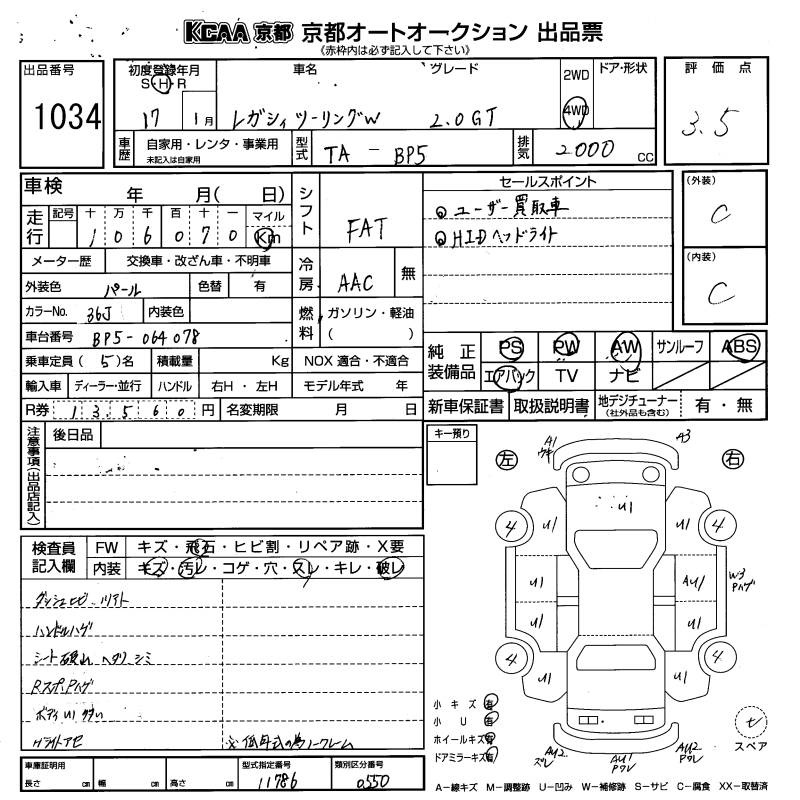 KCAA 京都 京都オートオークション 出品票
《赤枠内は必ず記入して下さい》
出品番号
1034
初度登録年月
S・H・R
17 1月
車名
グレード
レガシィツーリングW 2.0GT
2WD
4WD
ドア・形状
評価点
3.5
車歴
自家用・レンタ・事業用
未記入は自家用
型式
TA - BP5
排気
2000 cc
車検
年 月( 日)
走行
記号 十 万 千 百 十 一 マイル
1 0 6 0 7 0 Km
メーター歴 交換車・改ざん車・不明車
外装色 パール 色替 有
カラーNo. 36J 内装色
車台番号 BP5-064078
乗車定員 ( 5 )名 積載量 Kg
輸入車 ディーラー・並行 ハンドル 右H・左H
R券 13560 円 名変期限 月 日
シフト FAT
冷房 AAC 無
燃料 ガソリン・軽油
( )
NOX 適合・不適合
モデル年式 年
セールスポイント
◎ユーザー買取車
◎HIDヘッドライト
(外装)
C
(内装)
C
純正装備品
PS PW AW サンルーフ ABS
エアバック TV ナビ
新車保証書 取扱説明書 地デジチューナー
(社外品も含む)
有・無
注意事項(出品店記入)
後日品
キー預り
左 右
A1
A3
U1
4 U1 U1 4
U1 AU1 W3
Pハゲ
U1 U1
4 U1 U1 4
小キズ 有
小U 有
ホイールキズ 有
ドアミラーキズ 有
AU2
AU1
AU2
セ
スペア
A−線キズ M−調整跡 U−凹み W−補修跡 S−サビ C−腐食 XX−取替済
検査員記入欄
FW キズ・飛石・ヒビ割・リペア跡・X要
内装 キズ・汚レ・コゲ・穴・スレ・キレ・破レ
ハンドルハゲ
シート破れ ヘタリ シミ
RスポPハゲ
ボディU1
Hライトアセ
※低年式の為ノークレーム
車庫証明用
長さ cm 幅 cm 高さ cm
型式指定番号
11786
類別区分番号
0550